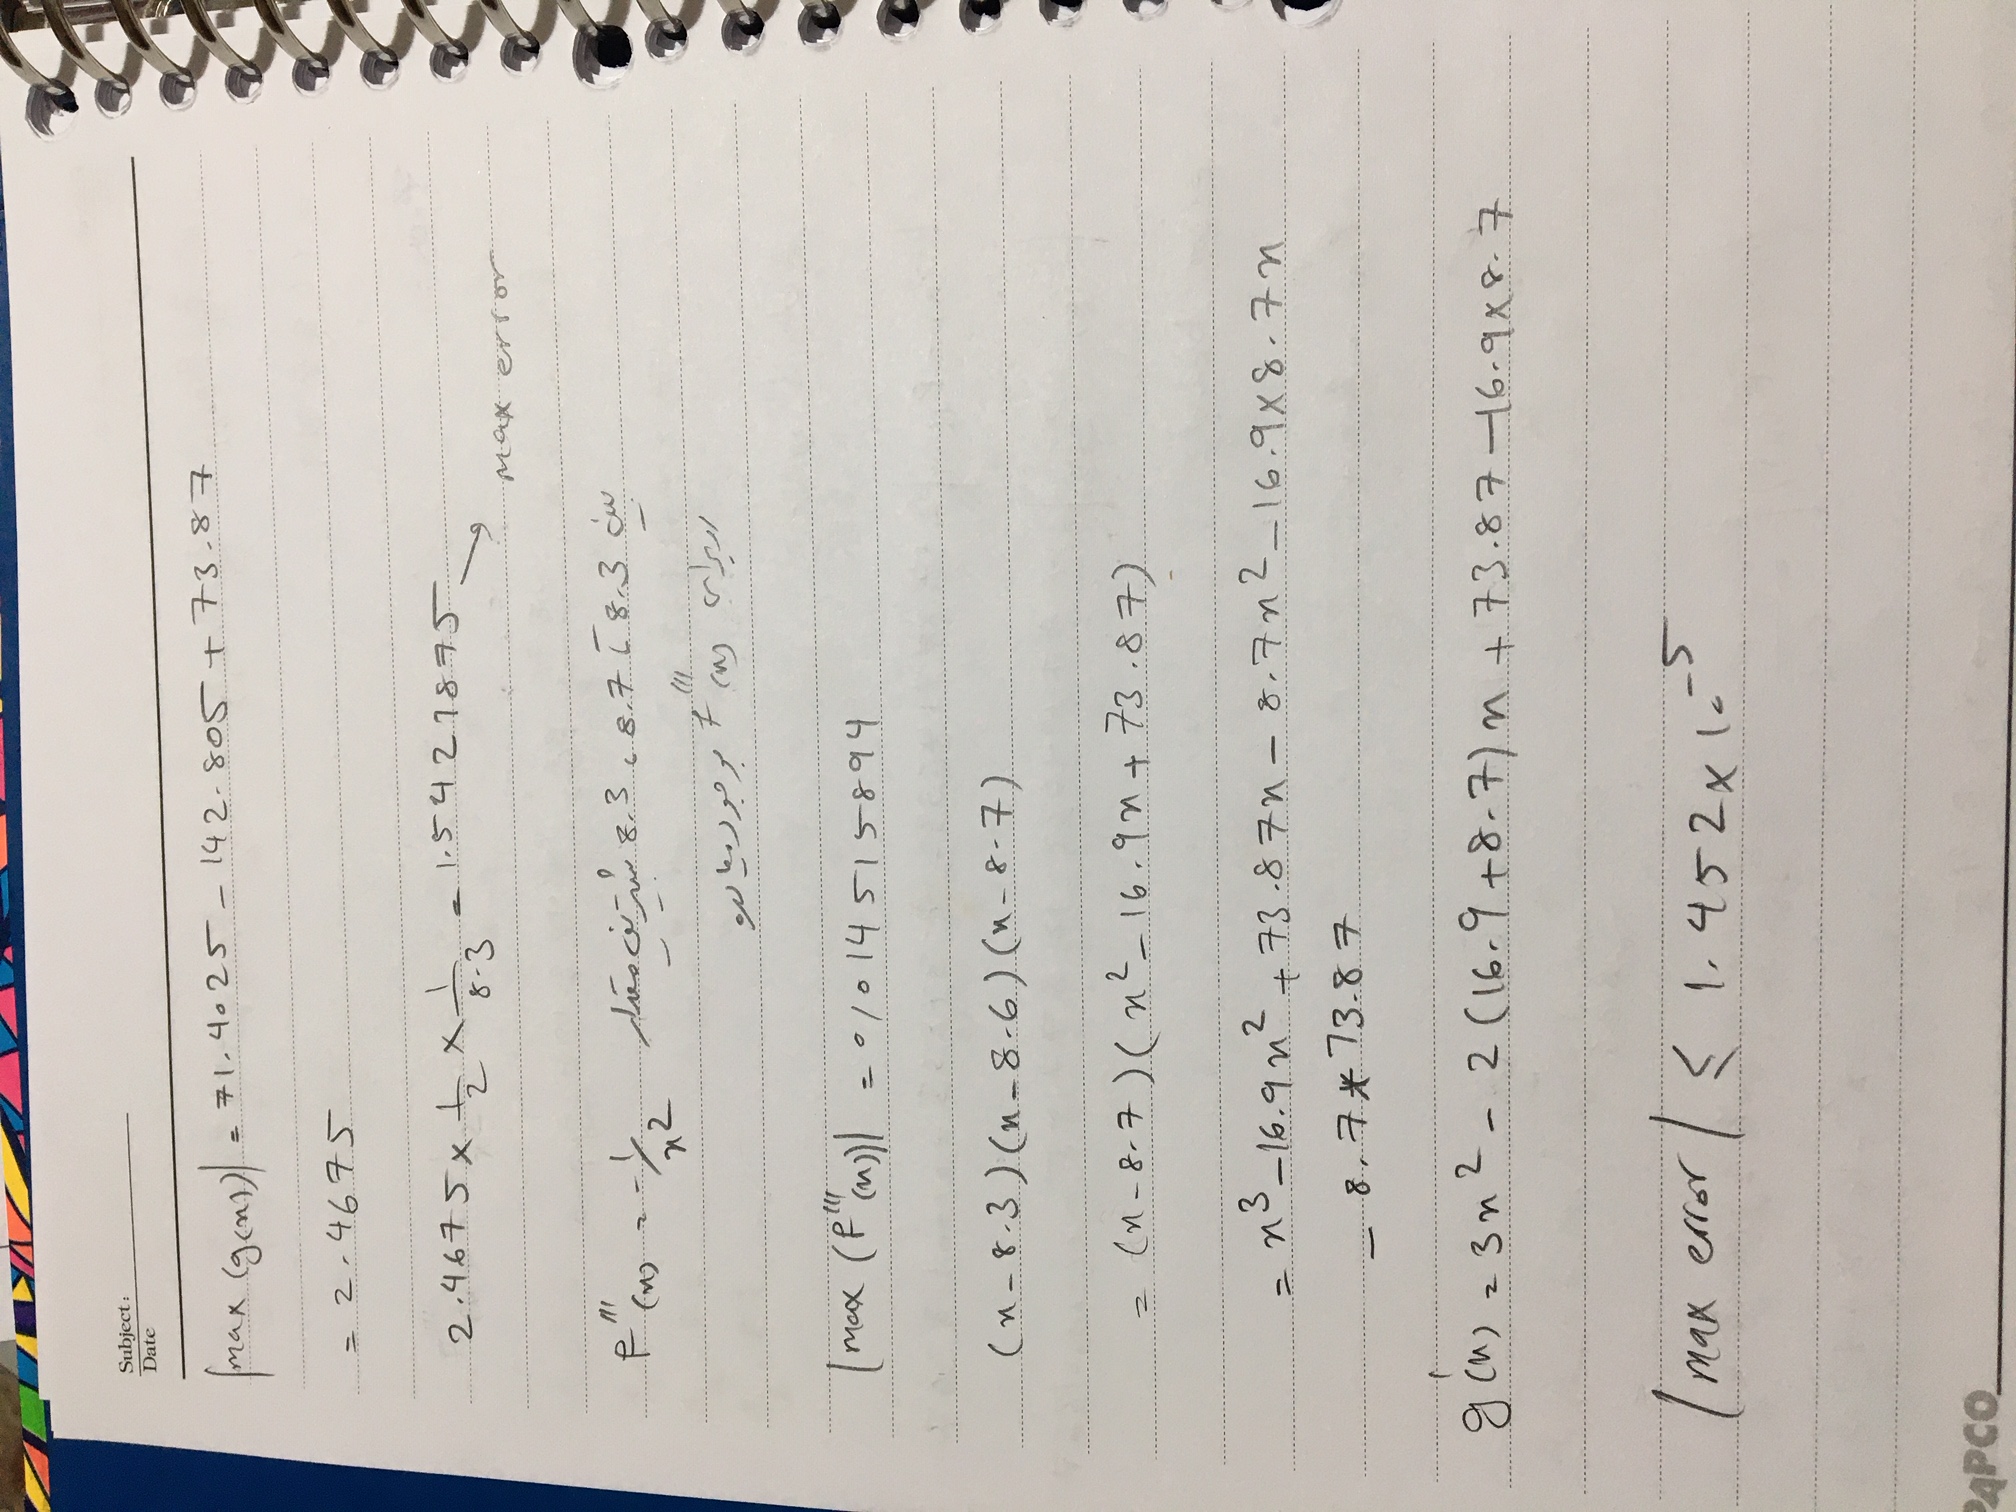 Subject:
Date
|max (g(x))| = 71.4025 - 142.805 + 73.87
= 2.4675
2.4675 × 1/2 × 1/8.3 = 1.5427875
max error
f'''(x) = -1/x² بین 8.3 تا 8.7 ، 8.3 بیشترین مقدار
f'''(x) بوجود میاره
|max (f'''(x))| = 0/014515894
(x-8.3)(x-8.6)(x-8.7)
= (x-8.7)(x²-16.9x+73.87)
= x³-16.9x²+73.87x-8.7x²-16.9×8.7x
- 8.7*73.87
g'(x) = 3x² - 2(16.9+8.7)x + 73.87-16.9×8.7
|max error| ≤ 1.452×10⁻⁵
PAPCO